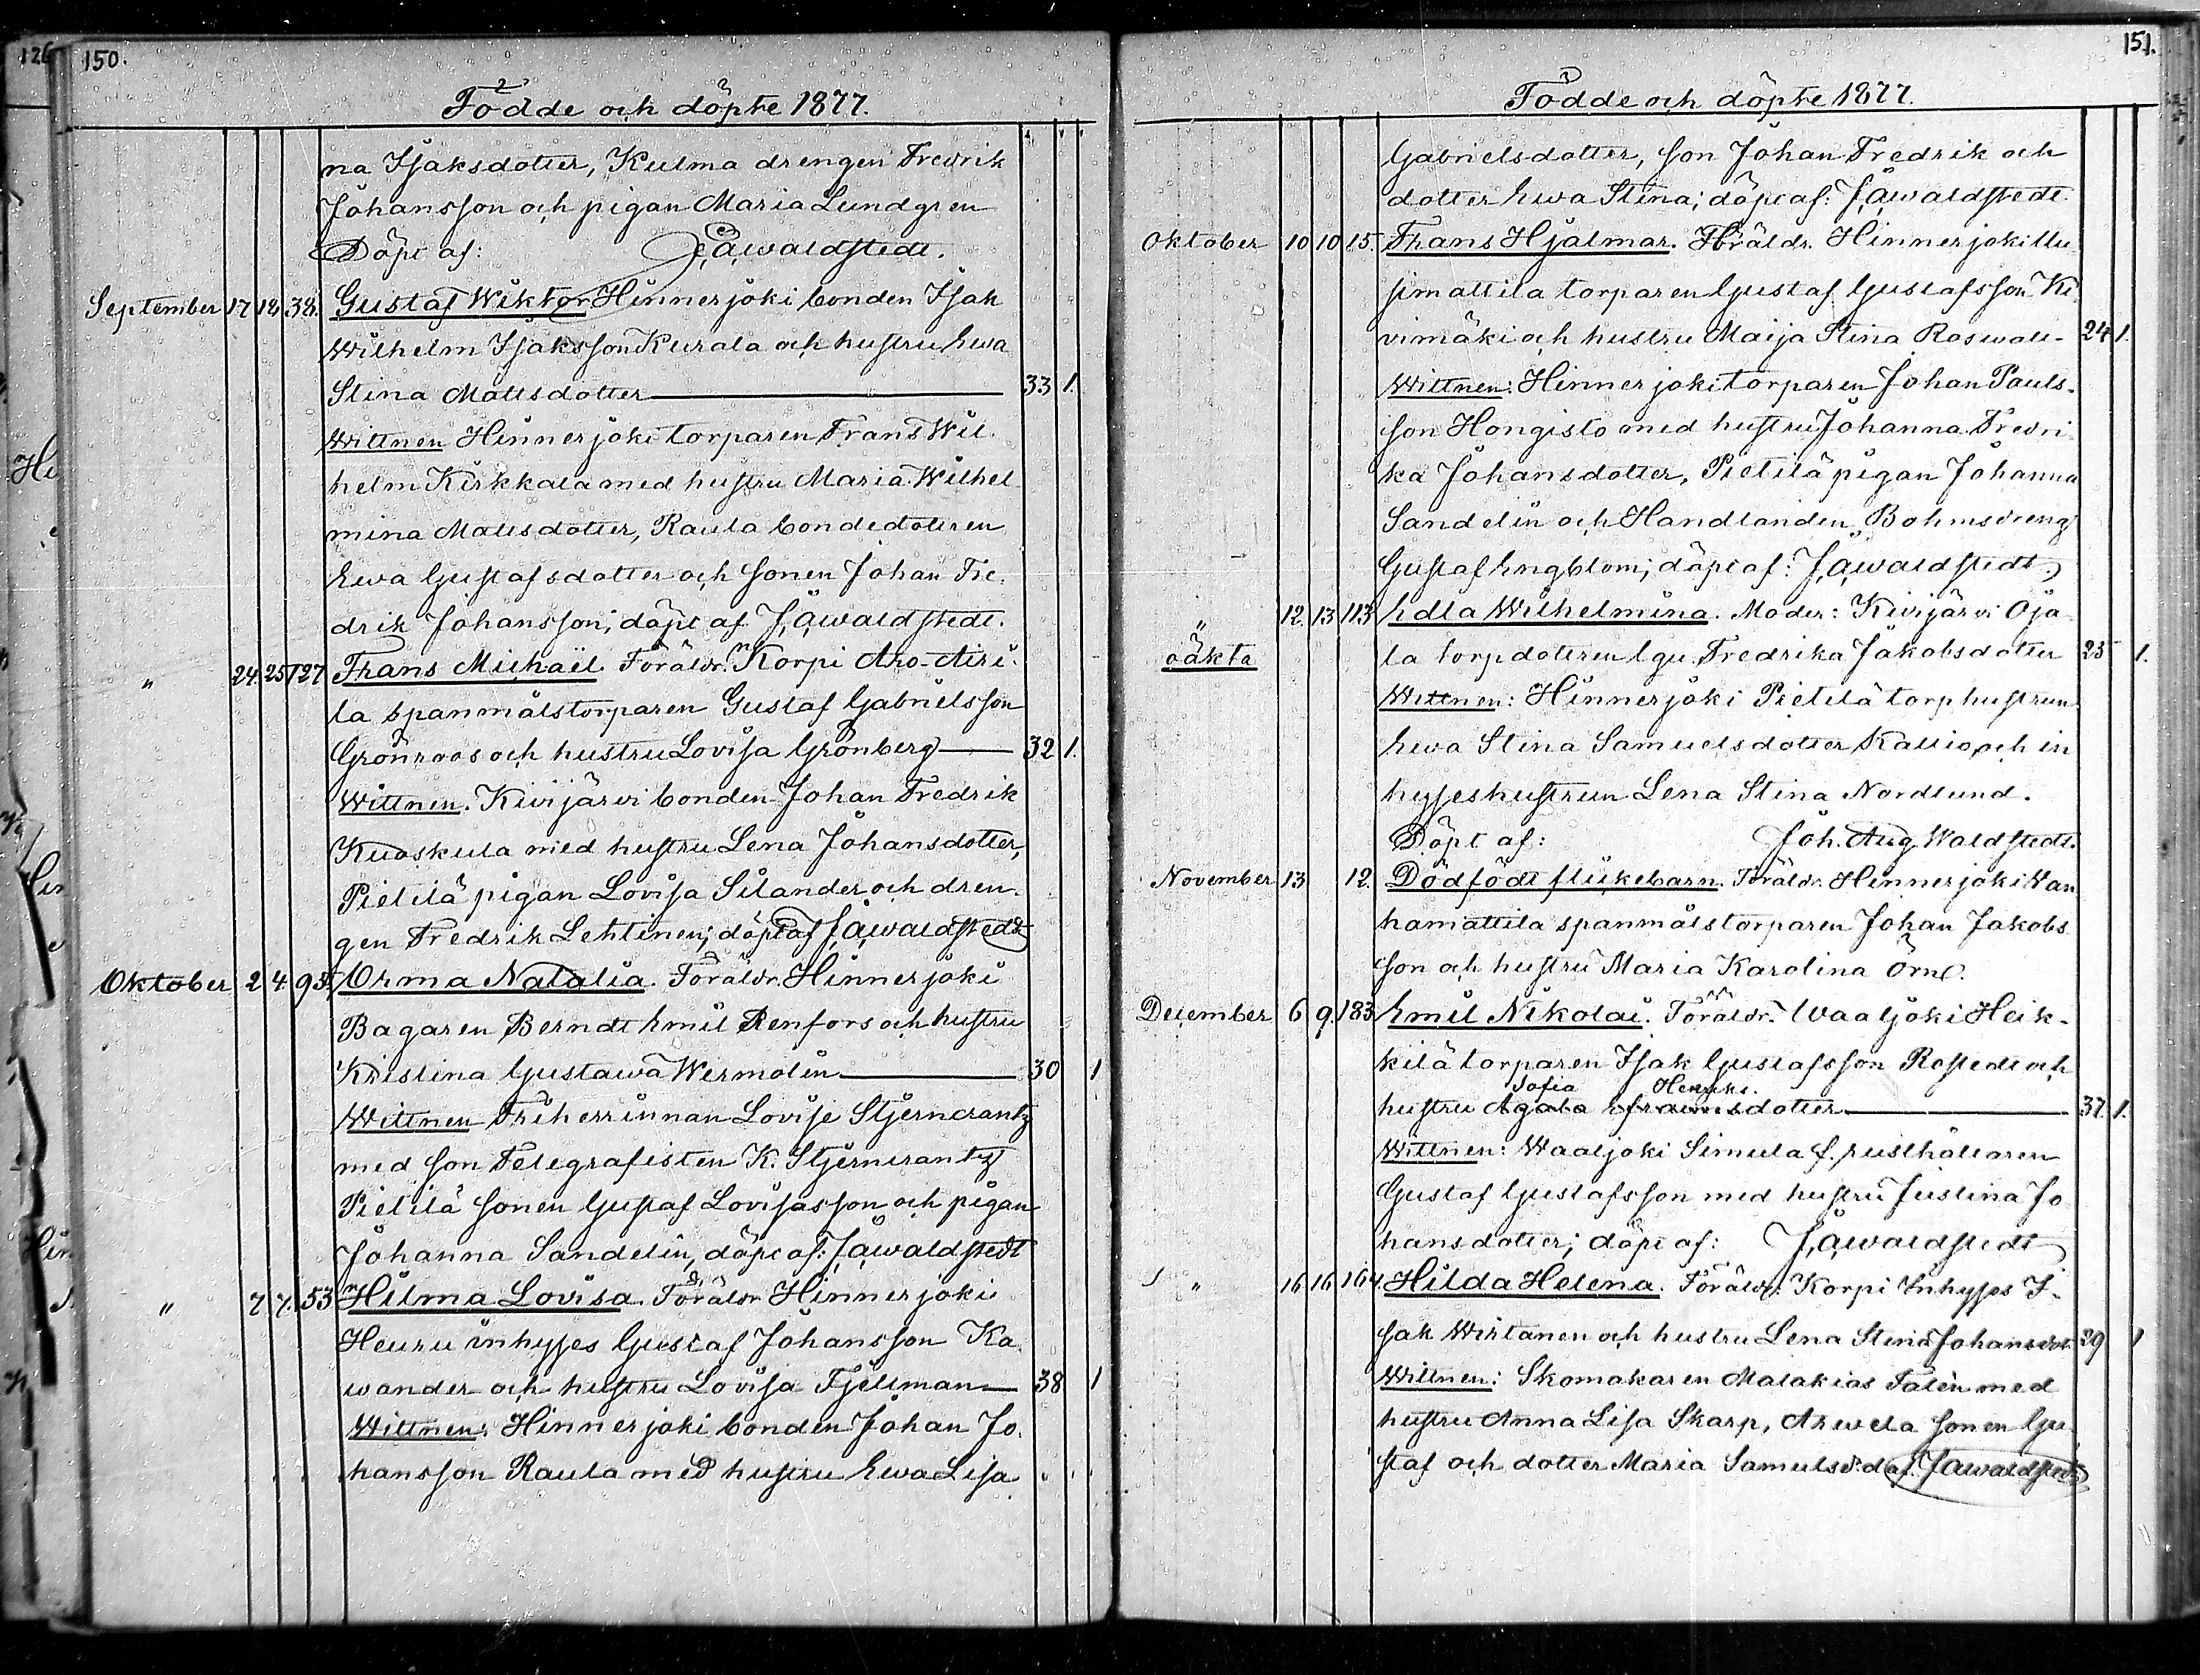 126
150.
Födde och döpte 1877.
na Isaksdotter, Kulma drengen Fredrik
Johansson och pigan Maria Lundgren
Döpt af: J, A, Waldstedt.
September 17 18 38. Gustaf Wiktor Hinnerjoki bonden Isak
Wilhelm Isaksson Keurala och hustru Ewa
Stina Mattsdotter 33 1.
Wittnen Hinnerjoki torparen Frans Wil
helm Kirkkala med hustru Maria Wilhel
mina Mattsdotter, Raula bondedottren
Ewa Gustafsdotter och sonen Johan Fre
drik Johansson; döpt af J, A, Waldstedt.
" 24. 25 127 Frans Michaël. Föräldr. Korpi Aro-Atri
la spanmålstorparen Gustaf Gabrielsson
Grönroos och hustru Lovisa Grönberg 32 1.
Wittnen. Kivijärvi bonden Johan Fredrik
Kuoskula med hustru Lena Johansdotter,
Pietilä pigan Lovisa Silander och dren
gen Fredrik Lehtinen; döpt af J, A, Waldstedt
Oktober 2 4 95. Orma Natalia. Föräldr. Hinnerjoki
Bagaren Berndt Emil Renfors och hustru
Kristina Gustawa Wermolin 30 1
Wittnen Friherrinnan Lovise Stjerncrantz
med son Telegrafisten K. Stjerncrantz
Pietilä sonen Gustaf Lovisasson och pigan
Johanna Sandelin, döpt af: J, A, Waldstedt
" 7 7. 53 Hilma Lovisa. Föräldr. Hinnerjoki
Heuru inhyses Gustaf Johansson Ka
wander och hustru Lovisa Fjellman 38 1
Wittnen: Hinnerjoki bonden Johan Jo
hansson Raula med hustru Ewa Lisa
151.
Födde och döpte 1877.
Gabrielsdotter, son Johan Fredrik och
dotter Ewa Stina; döpt af: J, A, Waldstedt
Oktober 10 10 15. Frans Hjalmar. Föräldr. Hinnerjoki Uu
simattila torparen Gustaf Gustafsson Ki
vimäki och hustru Maija Stina Roswall 24 1.
Wittnen: Hinnerjoki torparen Johan Pauls
son Hongisto med hustru Johanna Fredri
ka Johansdotter, Pietilä pigan Johanna
Sandelin och Handlanden Bohms dreng
Gustaf Engblom; döpt af: J, A, Waldstedt.
" 12. 13 113 Edla Wilhelmina. Moder: Kivijärvi Oja
oäkta la torpdottren Fredrika Jakobsdotter 25 1.
Wittnen: Hinnerjoki Pietilä torphustrun
Ewa Stina Samuelsdotter Kallio och in
hyseshustrun Lena Stina Nordlund.
Döpt af: Joh. Aug. Waldstedt.
November 13 12. Dödfödt flickebarn. Föräldr. Hinnerjoki Wan
hamattila spanmålstorparen Johan Jakobs
son och hustru Maria Karolina Örn.
December 6 9. 183 Emil Nikolai. Föräldr. Waaljoki Heik
kilä torparen Isak Gustafsson Rostedt och
Sofia Henriks.
hustru Agata Efraimsdotter 37. 1.
Wittnen: Waaljoki Simula f, rusthållaren
Gustaf Gustafsson med hustru Justina Jo
hansdotter; döpt af: J, A, Waldstedt
" 16 16 164. Hilda Helena. Föräldr: Korpi Inhyses I
sak Wirtanen och hustru Lena Stina Johansdot. 29 1
Wittnen: Skomakaren Malakias Talén med
hustru Anna Lisa Skarp, Arwela sonen Gu
staf och dotter Maria Samuelsd. d. af. J A Waldstedt